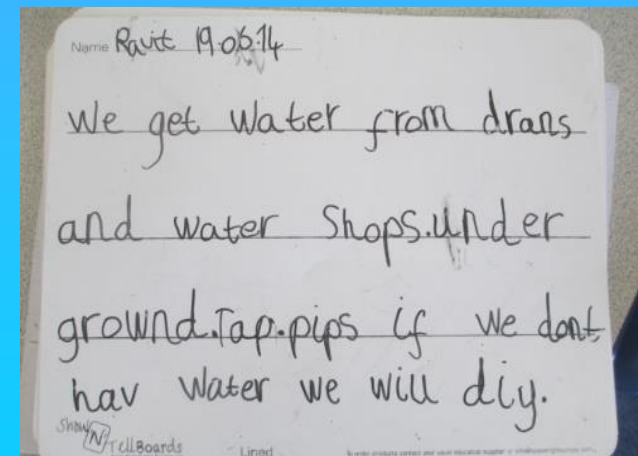 Name Ravit 19.06.14
We get water from drans
and water Shops.Under
grownd.Tap.pips if we dont
hav water we will diy.
Show N TellBoards Lined